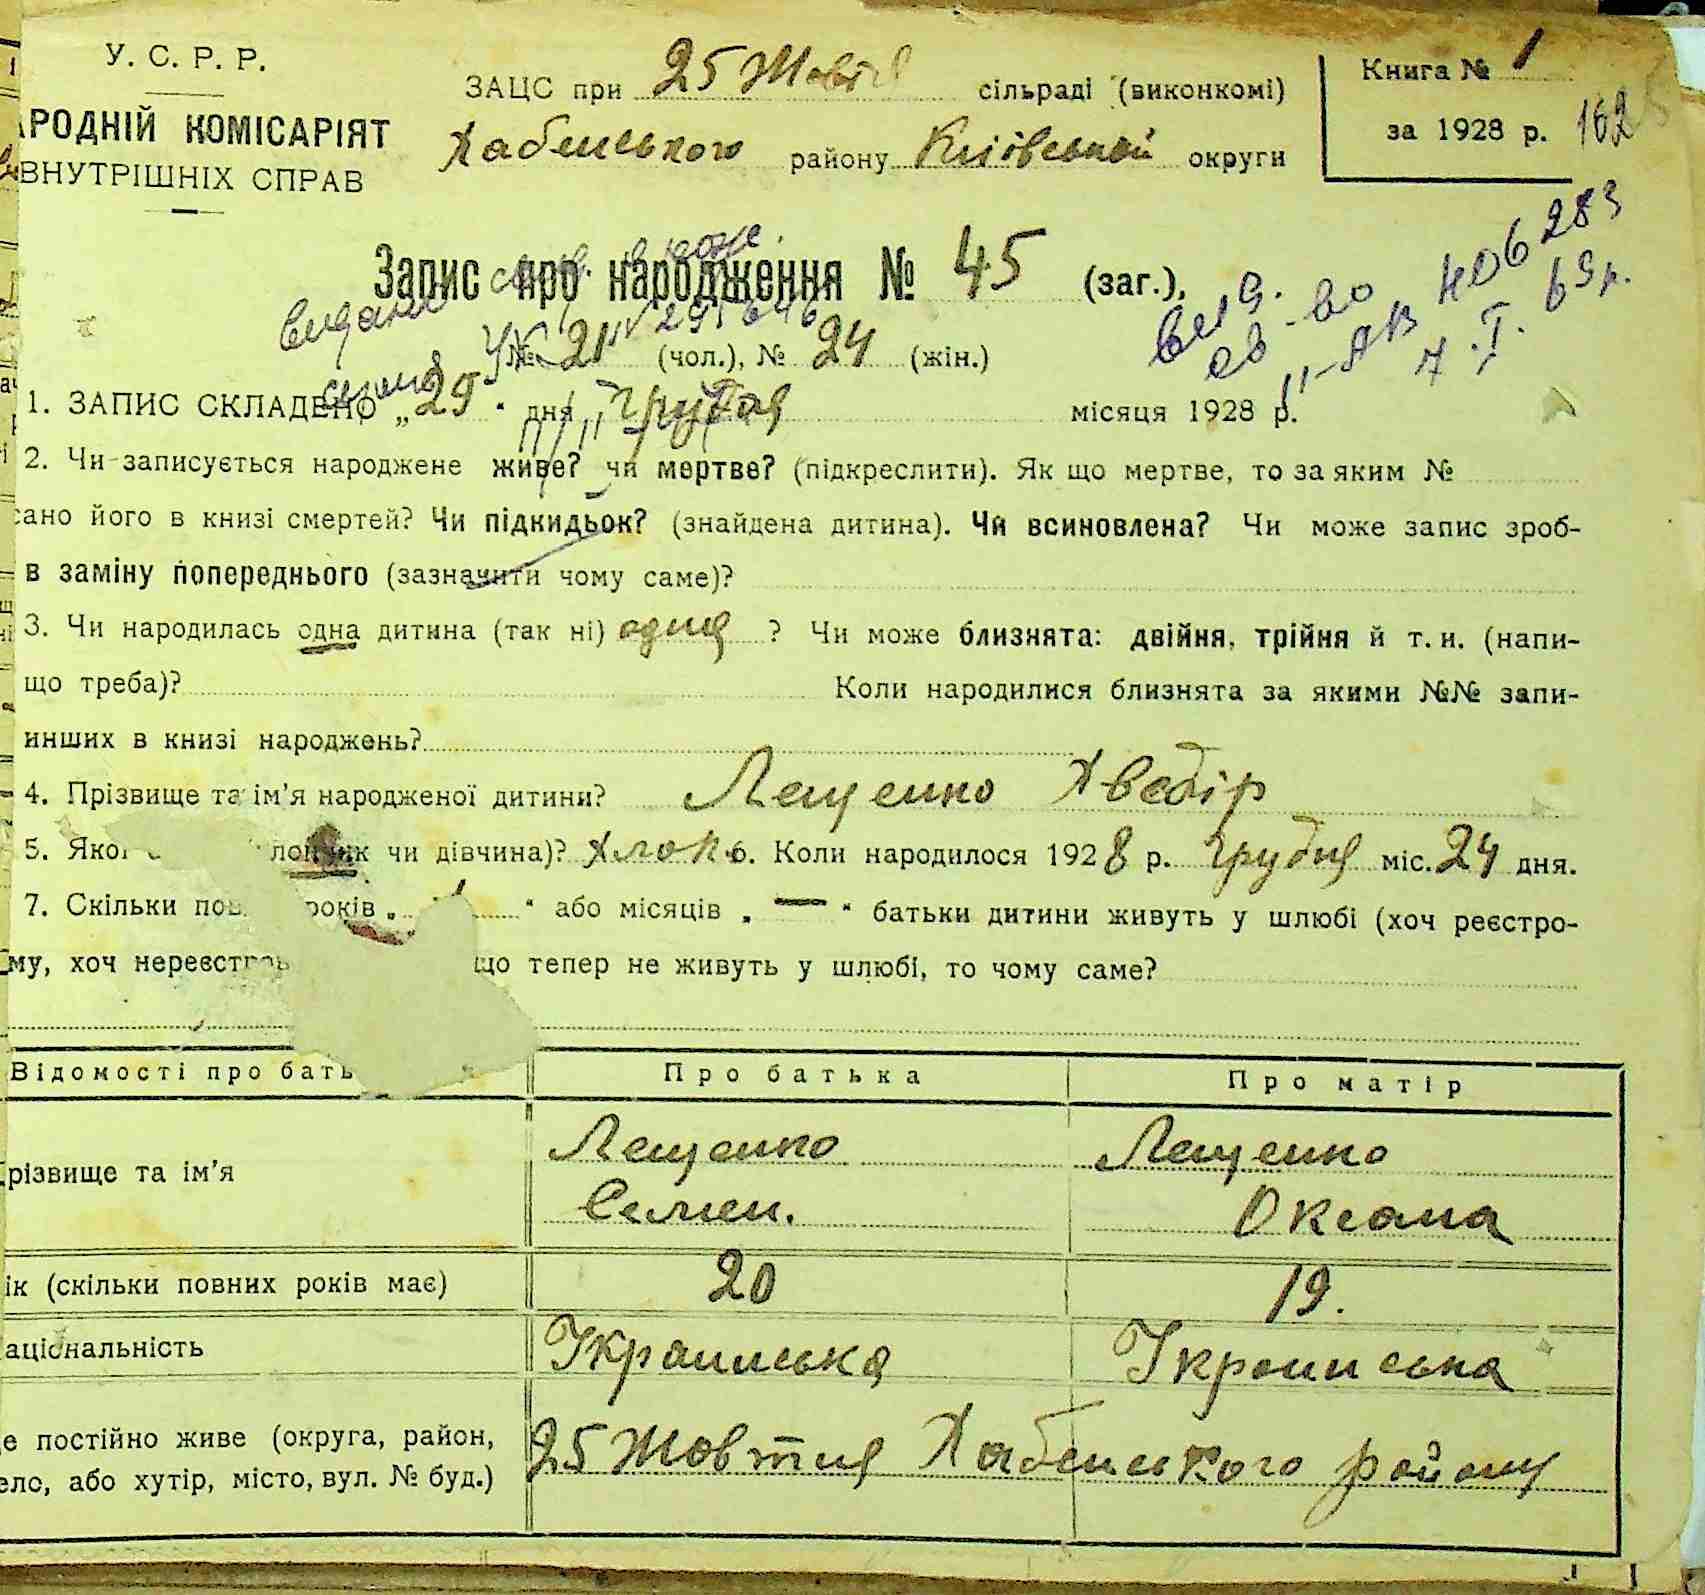 У. С. Р. Р.
РОДНІЙ КОМІСАРІЯТ
ВНУТРІШНІХ СПРАВ
ЗАЦС при 25 Жовтня сільраді (виконкомі)
Хабенського району Київської округи
Книга № 1
за 1928 р. 162
Запис про народження № 45 (заг.),
№ 21 (чол.), № 24 (жін.)
видано
вид.
НОБ 283
7.I.69р.
1. ЗАПИС СКЛАДЕНО „29“ дня Грудня місяця 1928 р.
2. Чи записується народжене живе? чи мертве? (підкреслити). Як що мертве, то за яким №
сано його в книзі смертей? Чи підкидьок? (знайдена дитина). Чи всиновлена? Чи може запис зроб-
в заміну попереднього (зазначити чому саме)?
3. Чи народилась одна дитина (так ні) одна ? Чи може близнята: двійня, трійня й т. и. (напи-
що треба)? Коли народилися близнята за якими №№ запи-
инших в книзі народжень?
4. Прізвище та ім'я народженої дитини? Лещенко Хведір
5. Яко лопчик чи дівчина)? Хлоп. 6. Коли народилося 1928 р. Грудня міс. 24 дня.
7. Скільки пов років „ “ або місяців „ — “ батьки дитини живуть у шлюбі (хоч реєстро-
му, хоч нереєстров що тепер не живуть у шлюбі, то чому саме?
Відомості про бать Про батька Про матір
різвище та ім'я Лещенко Лещенко
Семен. Оксана
ік (скільки повних років має) 20 19.
аціональність Українська Українська
е постійно живе (округа, район, 25 Жовтня Хабенського району
ело, або хутір, місто, вул. № буд.)